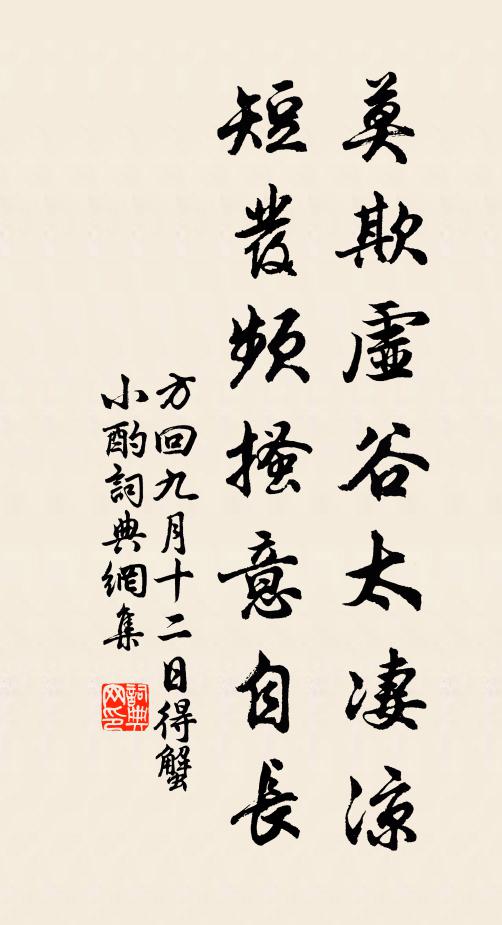 莫欺虛谷太凄涼
短發頻搔意自長
方回九月十二日得蟹
小酌詞典網集
詞典网印